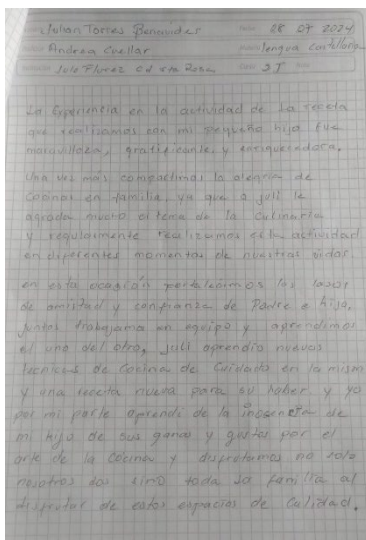 Julian Torres Benavides 28 07 2024
Andrea Cuellar lengua Castellana
Julio Florez Cd sta Rosa 2J
La Experiencia en la actividad de la receta
que realizamos con mi pequeño hijo fue
maravilloza, gratificante, y enriquecedora,
Una vez más compartimos la alegria de
Cocinar en familia, ya que a juli le
agrada mucho el tema de la Culinaria
y regularmente realizamos esta actividad
en diferentes momentos de nuestras vidas
en esta ocasión fortalecimos los lasos
de amistad y confianza de Padre e hijo,
juntos trabajamos en equipo y aprendimos
el uno del otro, juli aprendio nuevas
tecnicas de Cocina de Cuidado en la mism
y una receta nueva para su haber y yo
por mi parte aprendi de la inosencia de
mi hijo de sus ganas y gustos por el
arte de la Cocina y disfrutamos no solo
nosotros dos sino toda la familia al
disfrutar de estos espacios de Calidad.